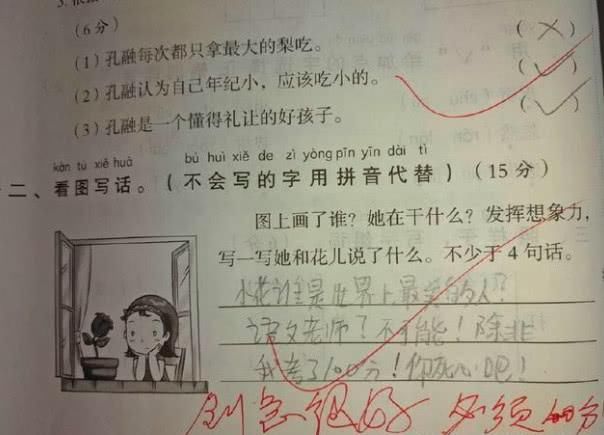 (6分)
(1) 孔融每次都只拿最大的梨吃。 (×)
(2) 孔融认为自己年纪小，应该吃小的。 (√)
(3) 孔融是一个懂得礼让的好孩子。 (√)
kàn tú xiě huà bú huì xiě de zì yòng pīn yīn dài tì
二、看图写话。(不会写的字用拼音代替) (15分)
图上画了谁？她在干什么？发挥想象力，
写一写她和花儿说了什么。不少于4句话。
花谁是世界上最美的人?
语文老师?不可能!除非
我考了100分!你死心吧!
创意很好 必须100分